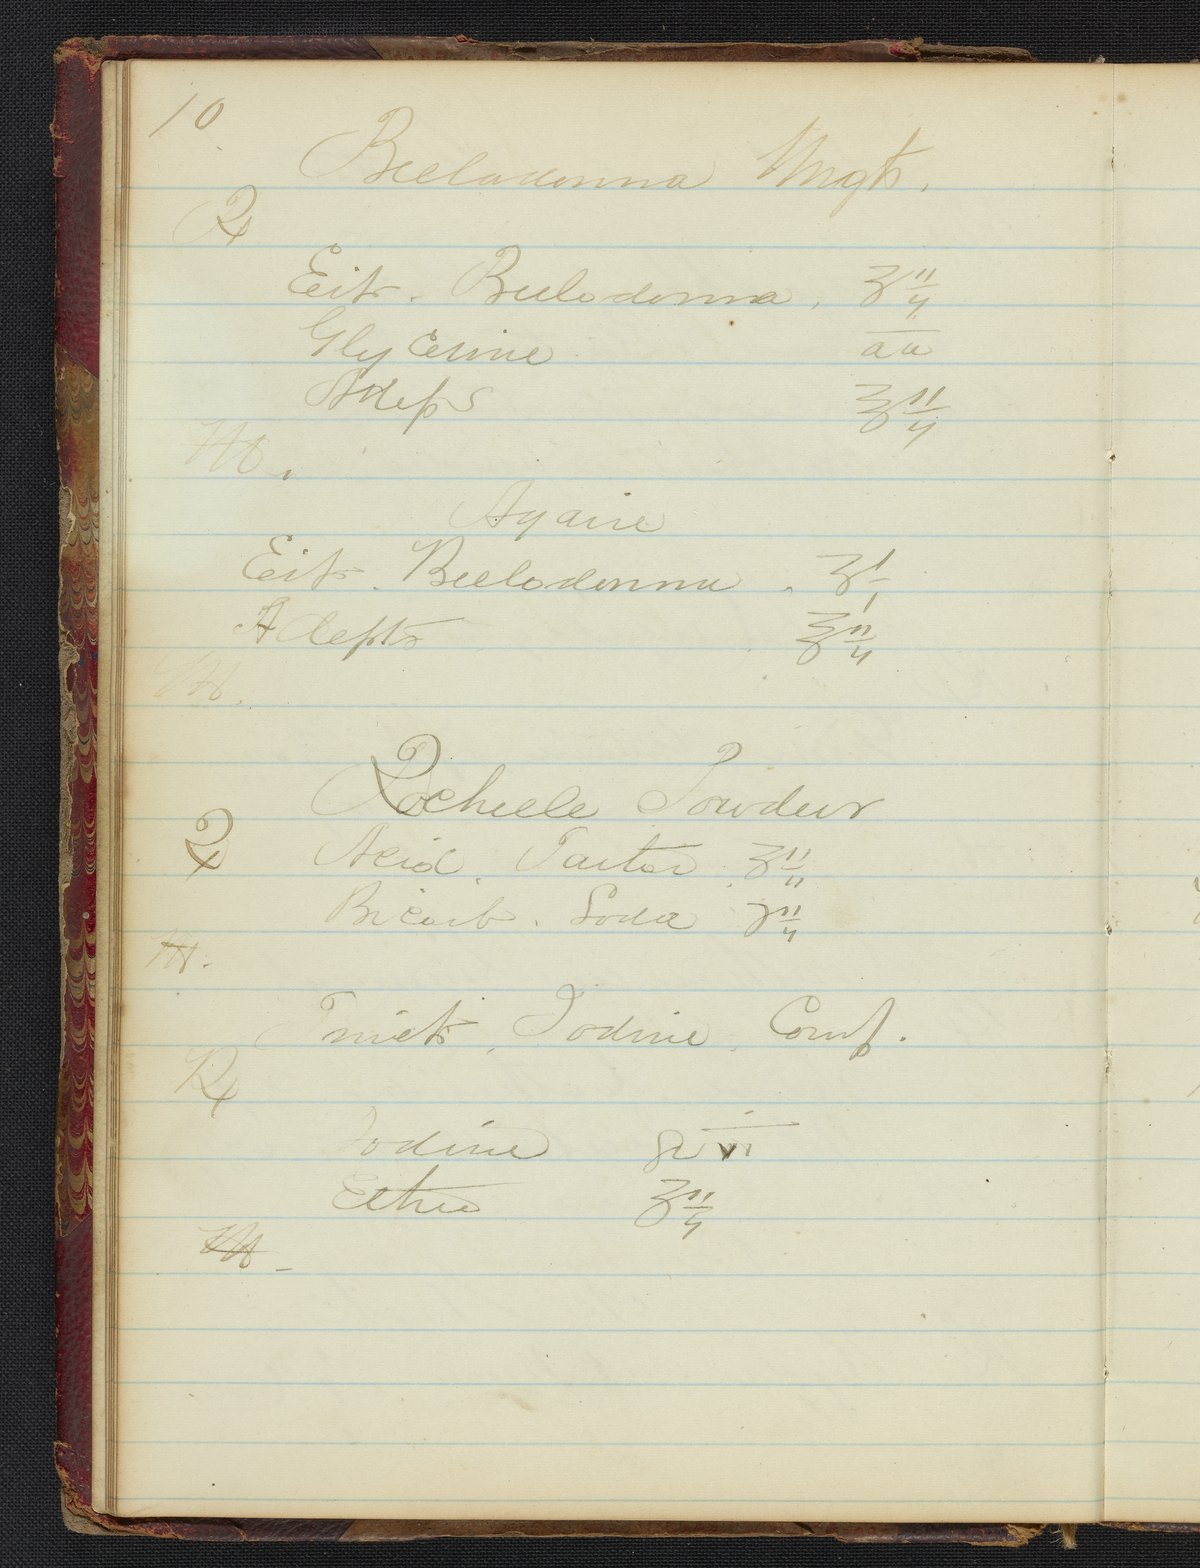 10
Belladonna Ungt.
℞
Ext. Belladonna. ʒ ii
Glycerine aa
Adeps ℥ ii
M.
Againe
Ext. Belladonna. ʒ i
Adepts ℥ ii
M.
Rochelle Powder
℞ Acid. Tarter. ʒ ii
Bicarb. Soda ʒ ii
M.
Tinct. Iodine. Comp.
℞
Iodine gr vi
Ether ℥ ii
M.